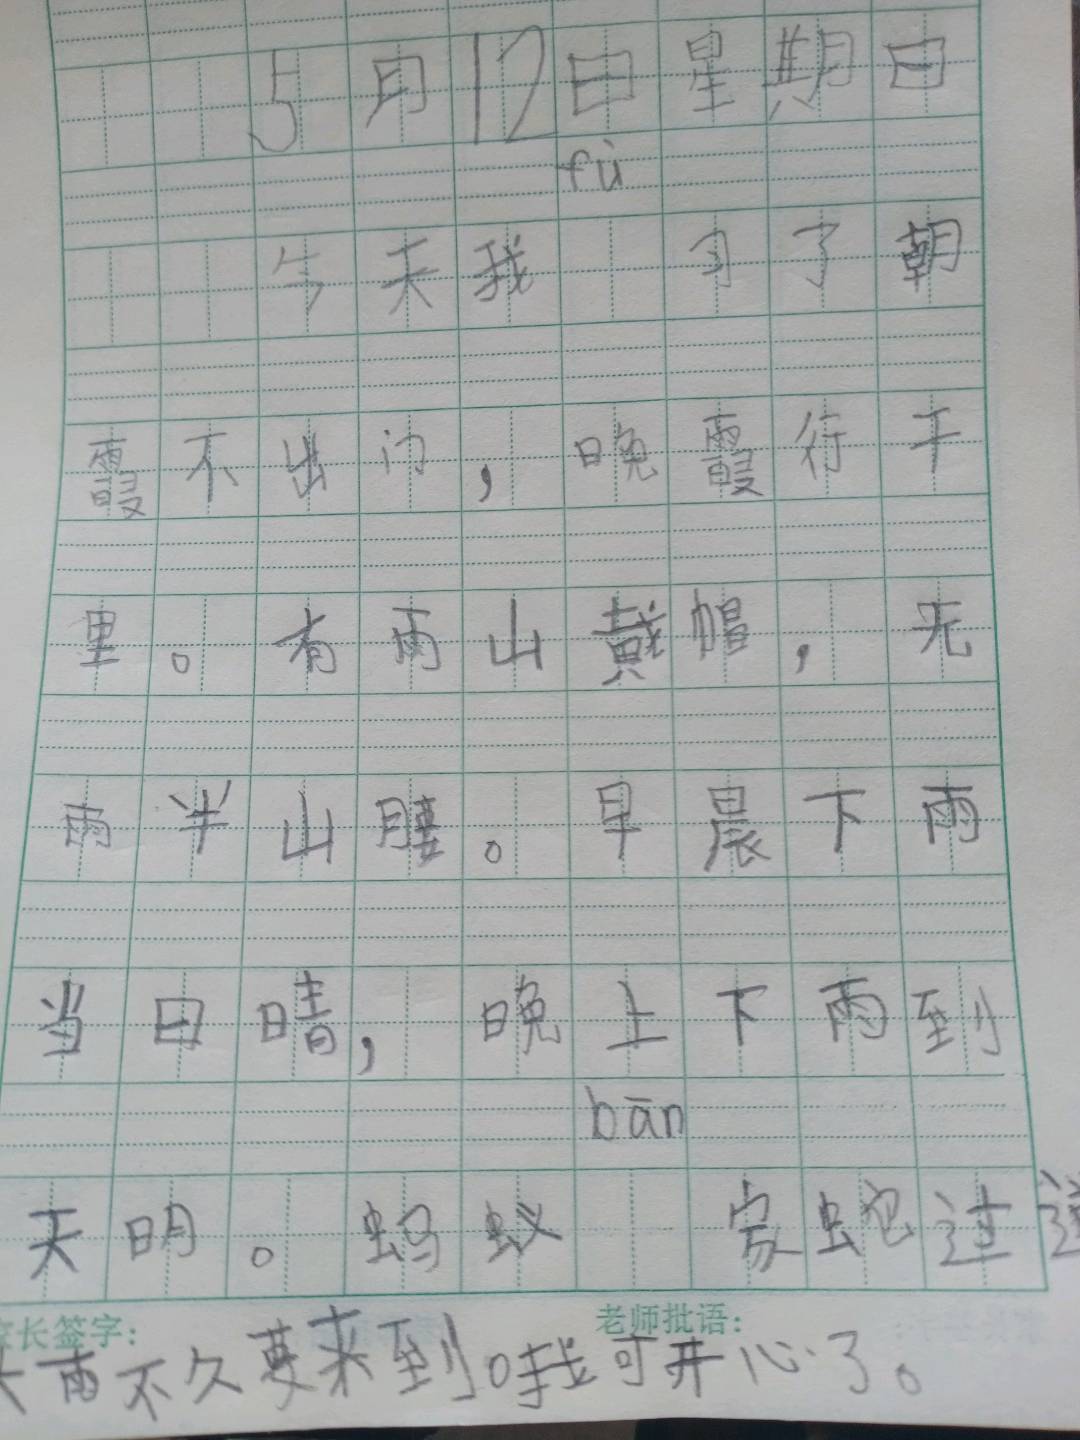 5月12日星期日
fù
今天我 习了朝
霞不出门，晚霞行千
里。有雨山戴帽，无
雨半山腰。早晨下雨
当日晴，晚上下雨到
bān
天明。蚂蚁 家蛇过道
长签字： 老师批语：
大雨不久要来到。我可开心了。